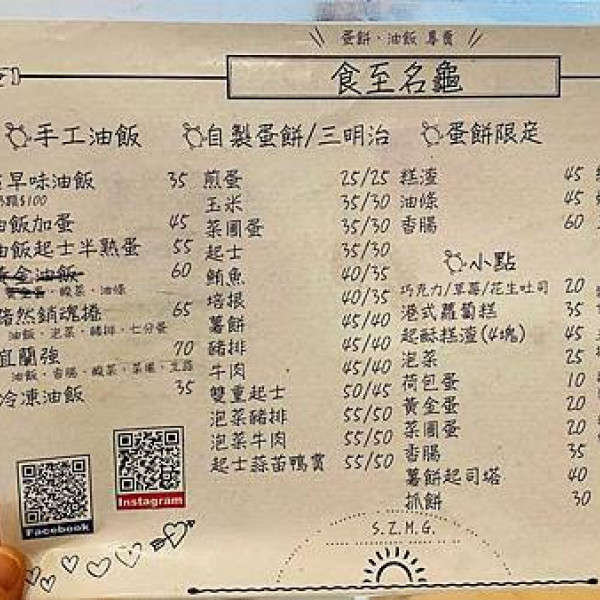 蛋餅、油飯 專賣
食至名龜
手工油飯
早味油飯 35
$100
油飯加蛋 45
油飯起士半熟蛋 55
黃金油飯 60
黃金蛋、酸菜、油條
黯然銷魂捲 65
油飯、泡菜、豬排、七分蛋
宜蘭強 70
油飯、香腸、酸菜、菜圃、玉米
冷凍油飯 35
Facebook
Instagram
自製蛋餅/三明治
煎蛋 25/25
玉米 35/30
菜圃蛋 35/30
起士 35/30
鮪魚 40/35
培根 40/35
薯餅 45/40
豬排 45/40
牛肉 45/40
雙重起士 50/45
泡菜豬排 55/50
泡菜牛肉 55/50
起士蒜苗鴨賞 55/50
蛋餅限定
糕渣 45
油條 45
香腸 60
小點
巧克力/草莓/花生吐司 20
港式蘿蔔糕 35
起酥糕渣(4塊) 45
泡菜 25
荷包蛋 10
黃金蛋 20
菜圃蛋 20
香腸 35
薯餅起司塔 40
抓餅 30
S.Z.M.G.